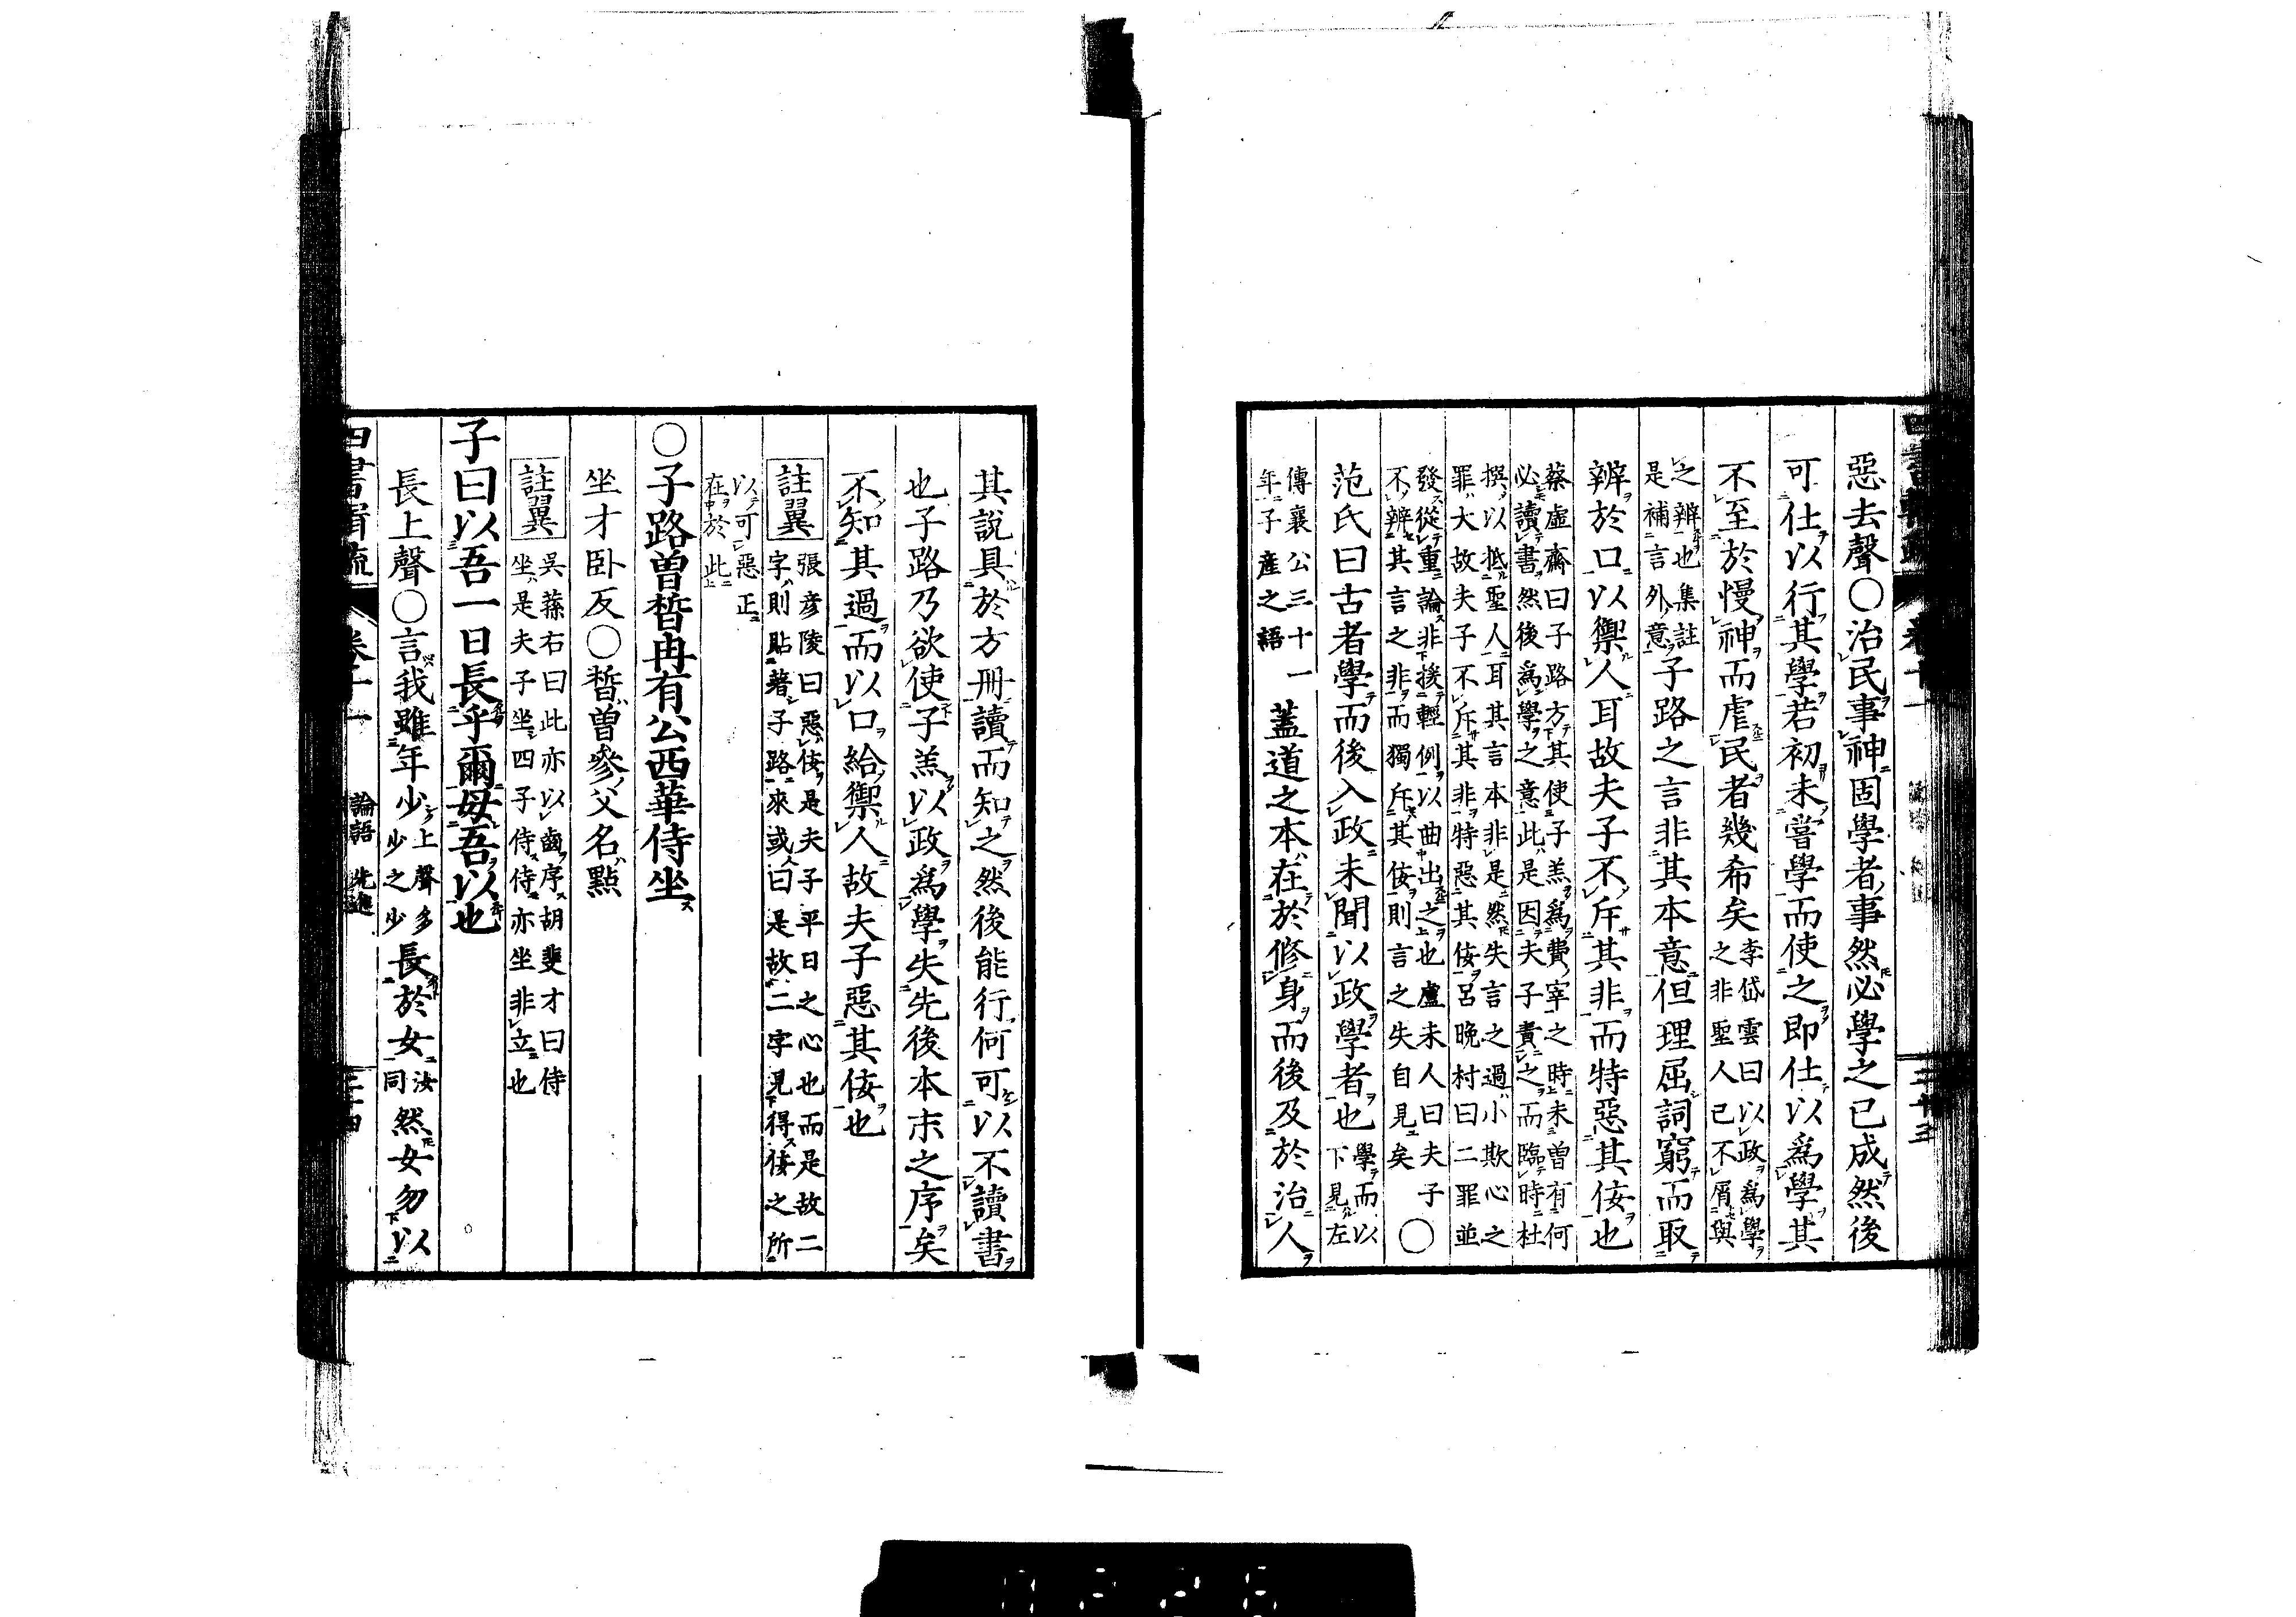 惡去聲○治民事神固學者事然必學之已成然後
可仕以行其學若初未嘗學而使之即仕以爲學其
不至於慢神而虐民者幾希矣李岱雲曰以政爲學之非聖人已不屑與
之辨也集註是補言外意子路之言非其本意但理屈詞窮而取
辨於口以禦人耳故夫子不斥其非而特惡其佞也
蔡虛齋曰子路方其使子羔爲費宰之時未曾有何
必讀書然後爲學之意此是因夫子責之而臨時杜
撰以抵聖人耳其言本非是然失言之過小欺心之
罪大故夫子不斥其非特惡其佞呂晚村曰二罪並
發從重論非援輕例以曲出之也盧未人曰夫子
不辨其言之非而獨斥其佞則言之失自見矣○
范氏曰古者學而後入政未聞以政學者也學而以下見左
傳襄公三十一年子產之語蓋道之本在於修身而後及於治人
其說具於方冊讀而知之然後能行何可以不讀書
也子路乃欲使子羔以政爲學失先後本末之序矣
不知其過而以口給禦人故夫子惡其佞也
註翼 張彦陵曰惡佞是夫子平日之心也而是故二
字則貼著子路來或曰是故二字見得佞之所
以可惡正在於此
○子路曾晳冉有公西華侍坐
坐才臥反○晳曾參父名點
註翼 吳蓀右曰此亦以齒序胡斐才曰侍
坐是夫子坐四子侍侍亦坐非立也
子曰以吾一日長乎爾毋吾以也
長上聲○言我雖年少上聲多少之少長於女汝同然女勿以
四書輯疏 卷十一 論語 先進